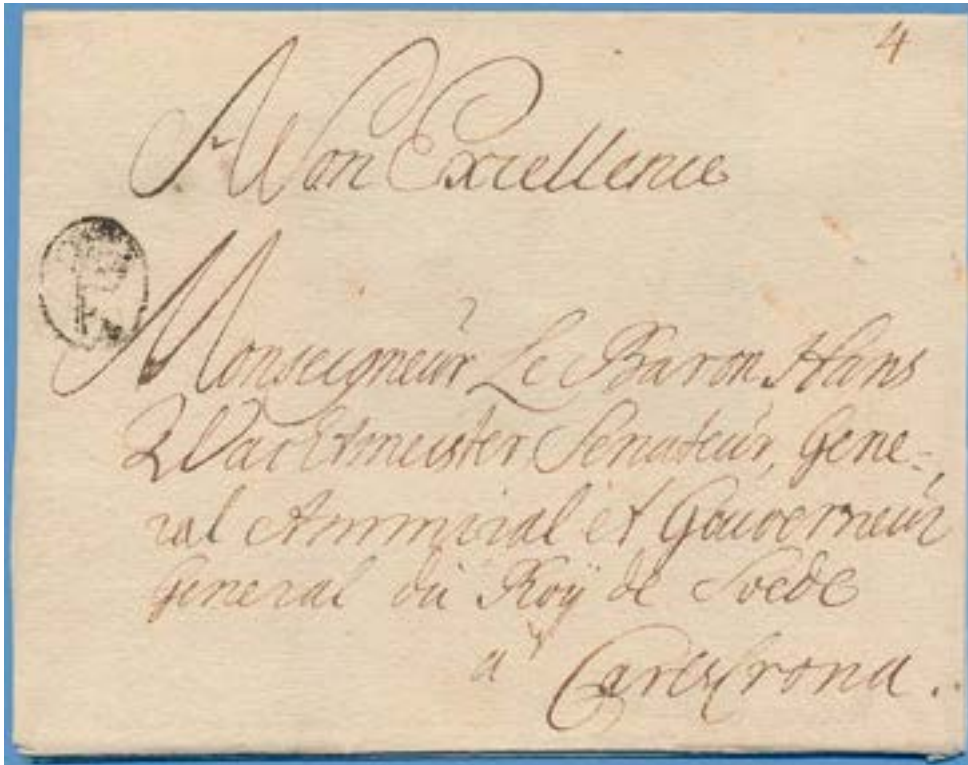 4
A Son Excellence
Monseigneur Le Baron Hans
Wachtmeister, Senateur, Gene-,
ral Ammiral et Gouverneur
General du Roÿ de Svede
a Carlscrona.